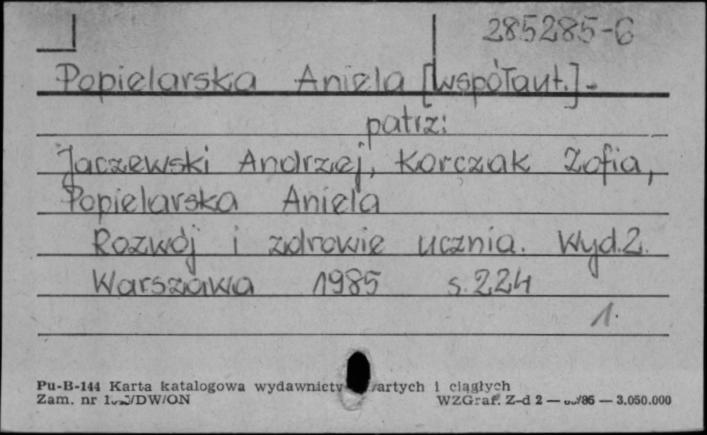 285285-C
Popielarska Aniela [współaut.] -
patrz:
Jaczewski Andrzej, Korczak Zofia,
Popielarska Aniela
Rozwój i zdrowie ucznia. Wyd.2.
Warszawa 1985 s.224
1.
Pu-B-144 Karta katalogowa wydawnictw zwartych i ciągłych
Zam. nr /DW/ON WZGraf. Z-d 2 — /86 — 3.050.000